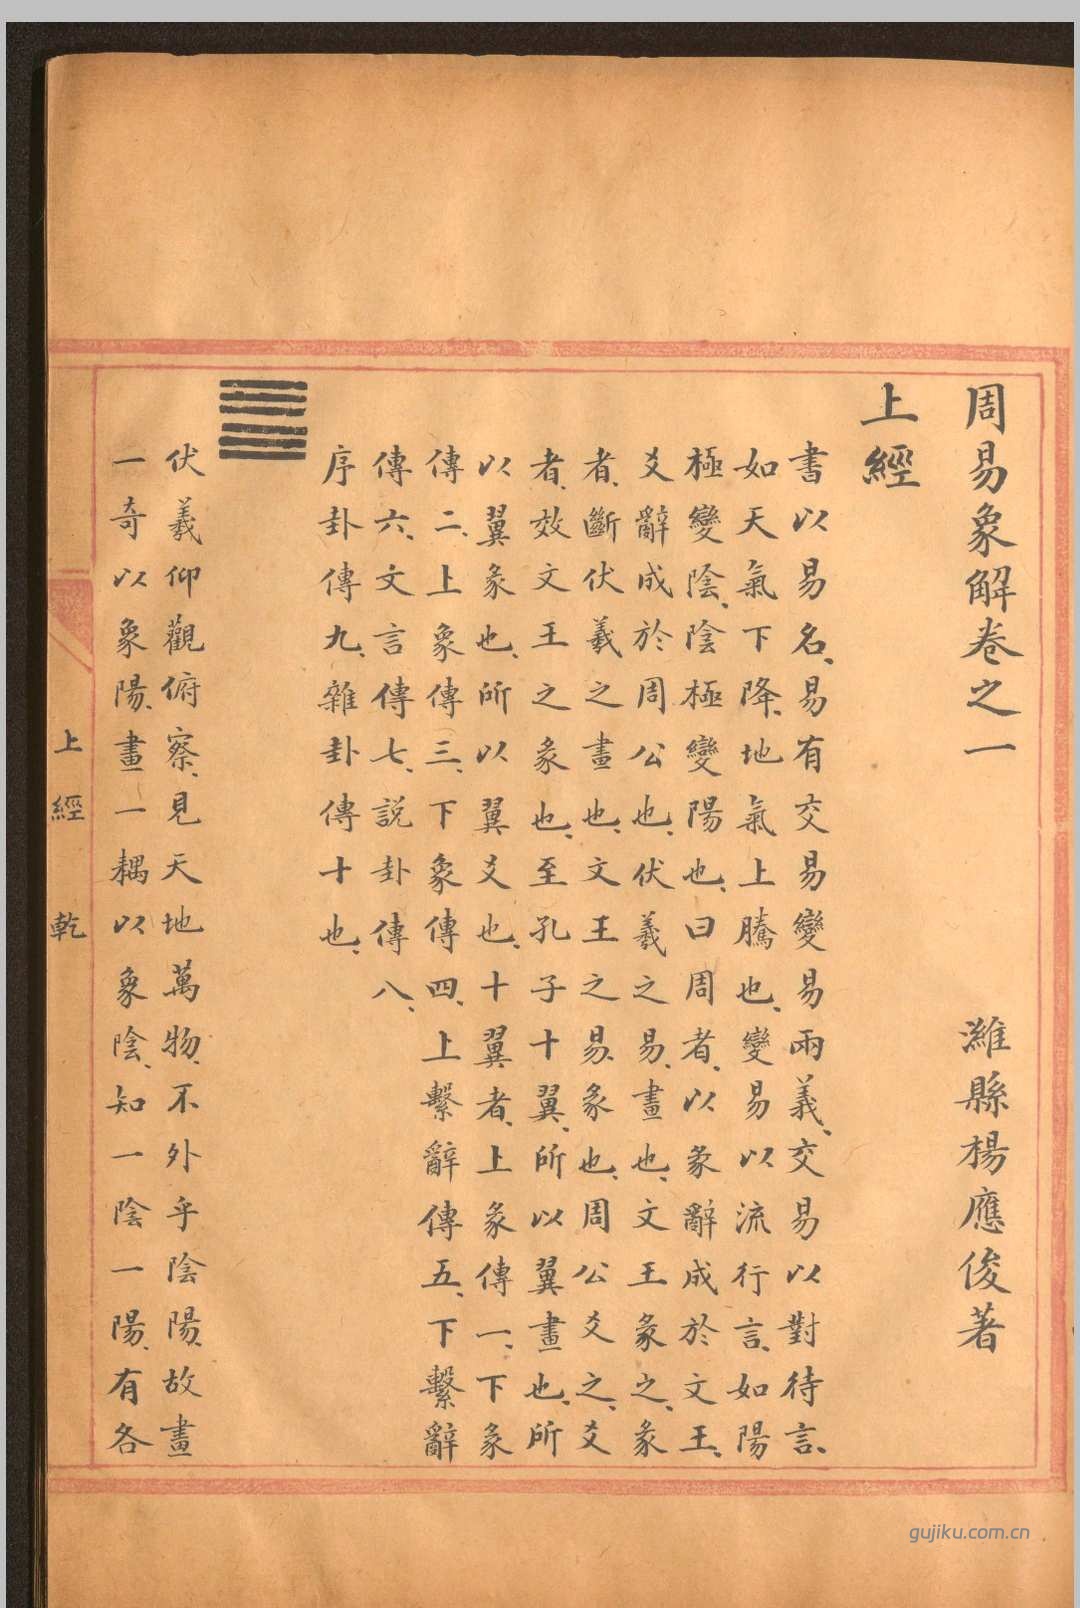 周易象解卷之一 濰縣楊應俊著
上經
書以易名、易有交易變易兩義、交易以對待言、
如天氣下降、地氣上騰也、變易以流行言、如陽
極變陰、陰極變陽也、曰周者、以彖辭成於文王、
爻辭成於周公也、伏羲之易、畫也、文王彖之、彖
者、斷伏羲之畫也、文王之易、彖也、周公爻之、爻
者、效文王之彖也、至孔子十翼、所以翼畫也、所
以翼彖也、所以翼爻也、十翼者、上彖傳一、下彖
傳二、上象傳三、下象傳四、上繫辭傳五、下繫辭
傳六、文言傳七、說卦傳八、
序卦傳九、雜卦傳十也、
伏羲仰觀俯察、見天地萬物、不外乎陰陽、故畫
一奇以象陽、畫一耦以象陰、知一陰一陽、有各
上經 乾
gujiku.com.cn